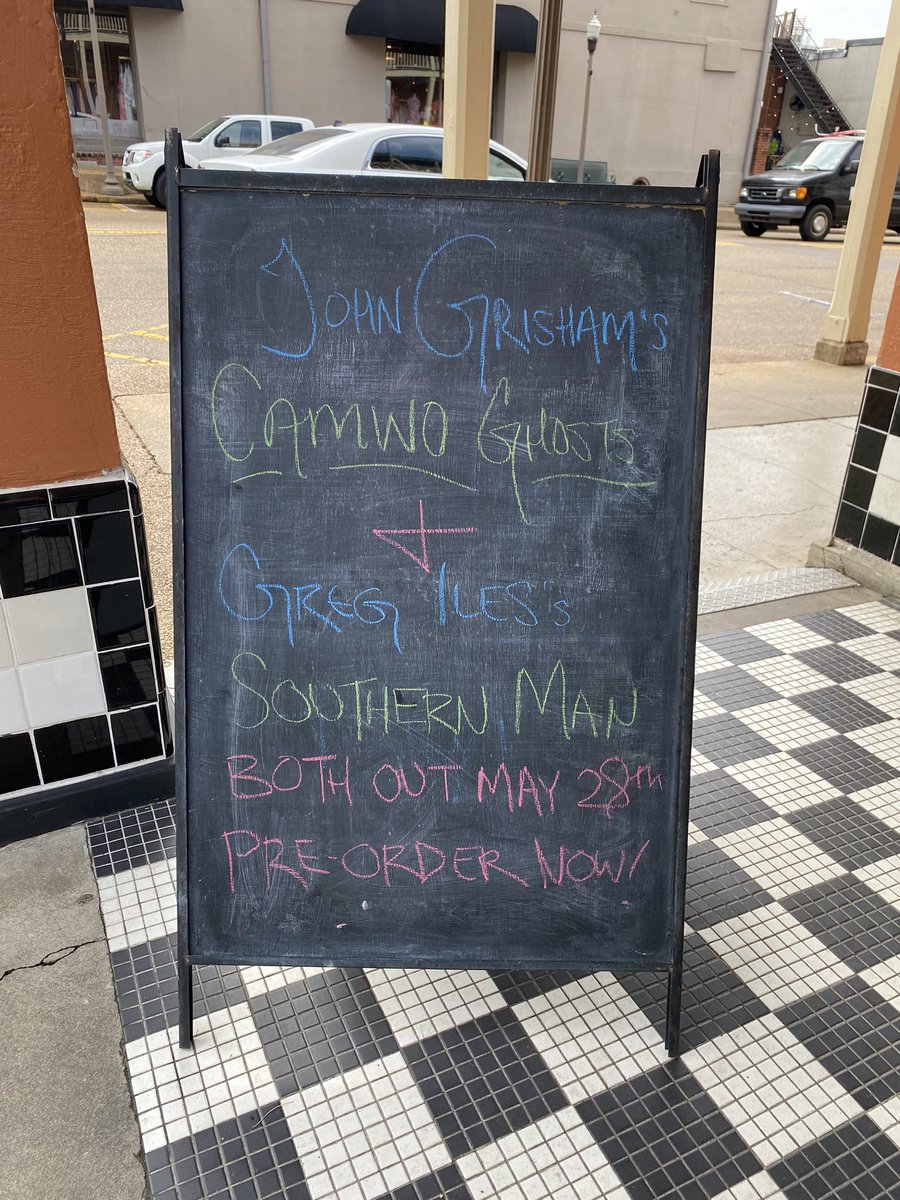 JOHN GRISHAM'S
CAMINO GHOSTS
+
GREG ILES'S
SOUTHERN MAN
BOTH OUT MAY 28TH
PRE-ORDER NOW!